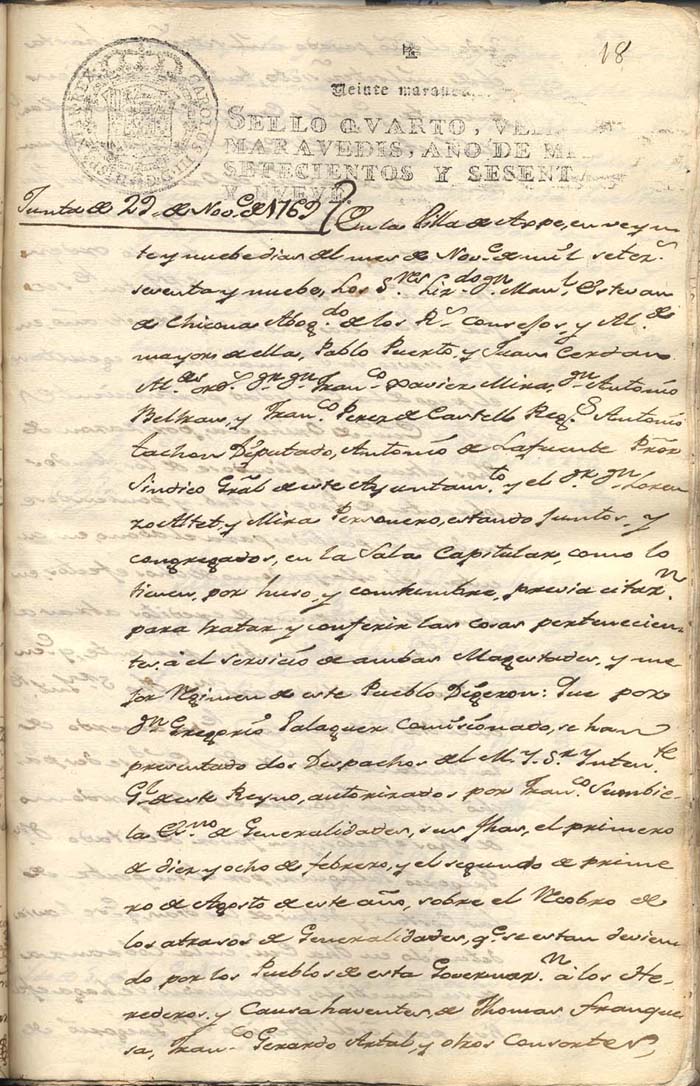 18
Veinte maraue
SELLO QVARTO, VEI
MARAVEDIS, AÑO DE MI
SETECIENTOS Y SESENT
Y NVEVE.
CAROLUS III D G HISPANIAR REX
Junta de 29. de Nov.e de 1769
En la Villa de Aspe, en veyn
te y nuebe dias del mes de Nov.e de mil setez.s
sesenta y nuebe, Los S.res Liz.do Dn. Man.l Estevan
de Chicona Abog.do de los R.s Consejos, y Al.de
mayor de ella, Pablo Puerto, y Juan Cerdan
Al.des ord.s Dn. Fran.co Xavier Mira, Dn. Antonio
Beltran, y Fran.co Perez de Castell Reg.s Antonio
Tachon Diputado, Antonio de Lafuente Pror
Sindico Gral de este Ayuntam.to y el Dr. Dn. Loren
zo Altet, y Mira Personero, estando juntos, y
congregados, en la Sala Capitular, como lo
tienen, por huso, y constumbre, previa citaz.n
para tratar y conferir las cosas pertenecien
tes, à el servicio de ambas Magestades, y me
jor Regimen de este Pueblo Digeron: Que por
Dn. Gregorio Palaquer Comisionado, se han
presentado dos Despachos del M. Y. S.r Ynten.te
G.l de este Reyno, autorizados por Fran.co Sumbie
la Es.no de Generalidades, sus fhas, el primero
de diez y ocho de febrero, y el segundo de prime
ro de Agosto de este año, sobre el Recobro de
los atrasos de Generalidades, q.e se estan devien
do por los Pueblos de esta Governaz.n à los He
rederos, y Causa haventes, de Thomas Franque
sa, Fran.co Gerardo Artal, y otros Consortes,